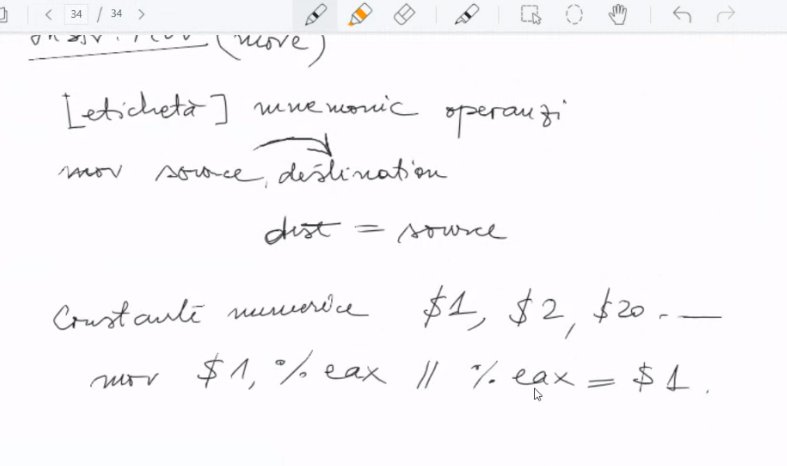 34 / 34
(move)
[etichetă] mnemonic operanzi
mov source, destination
dist = source
Constante numerice $1, $2, $20. —
mov $1, % eax // % eax = $1.